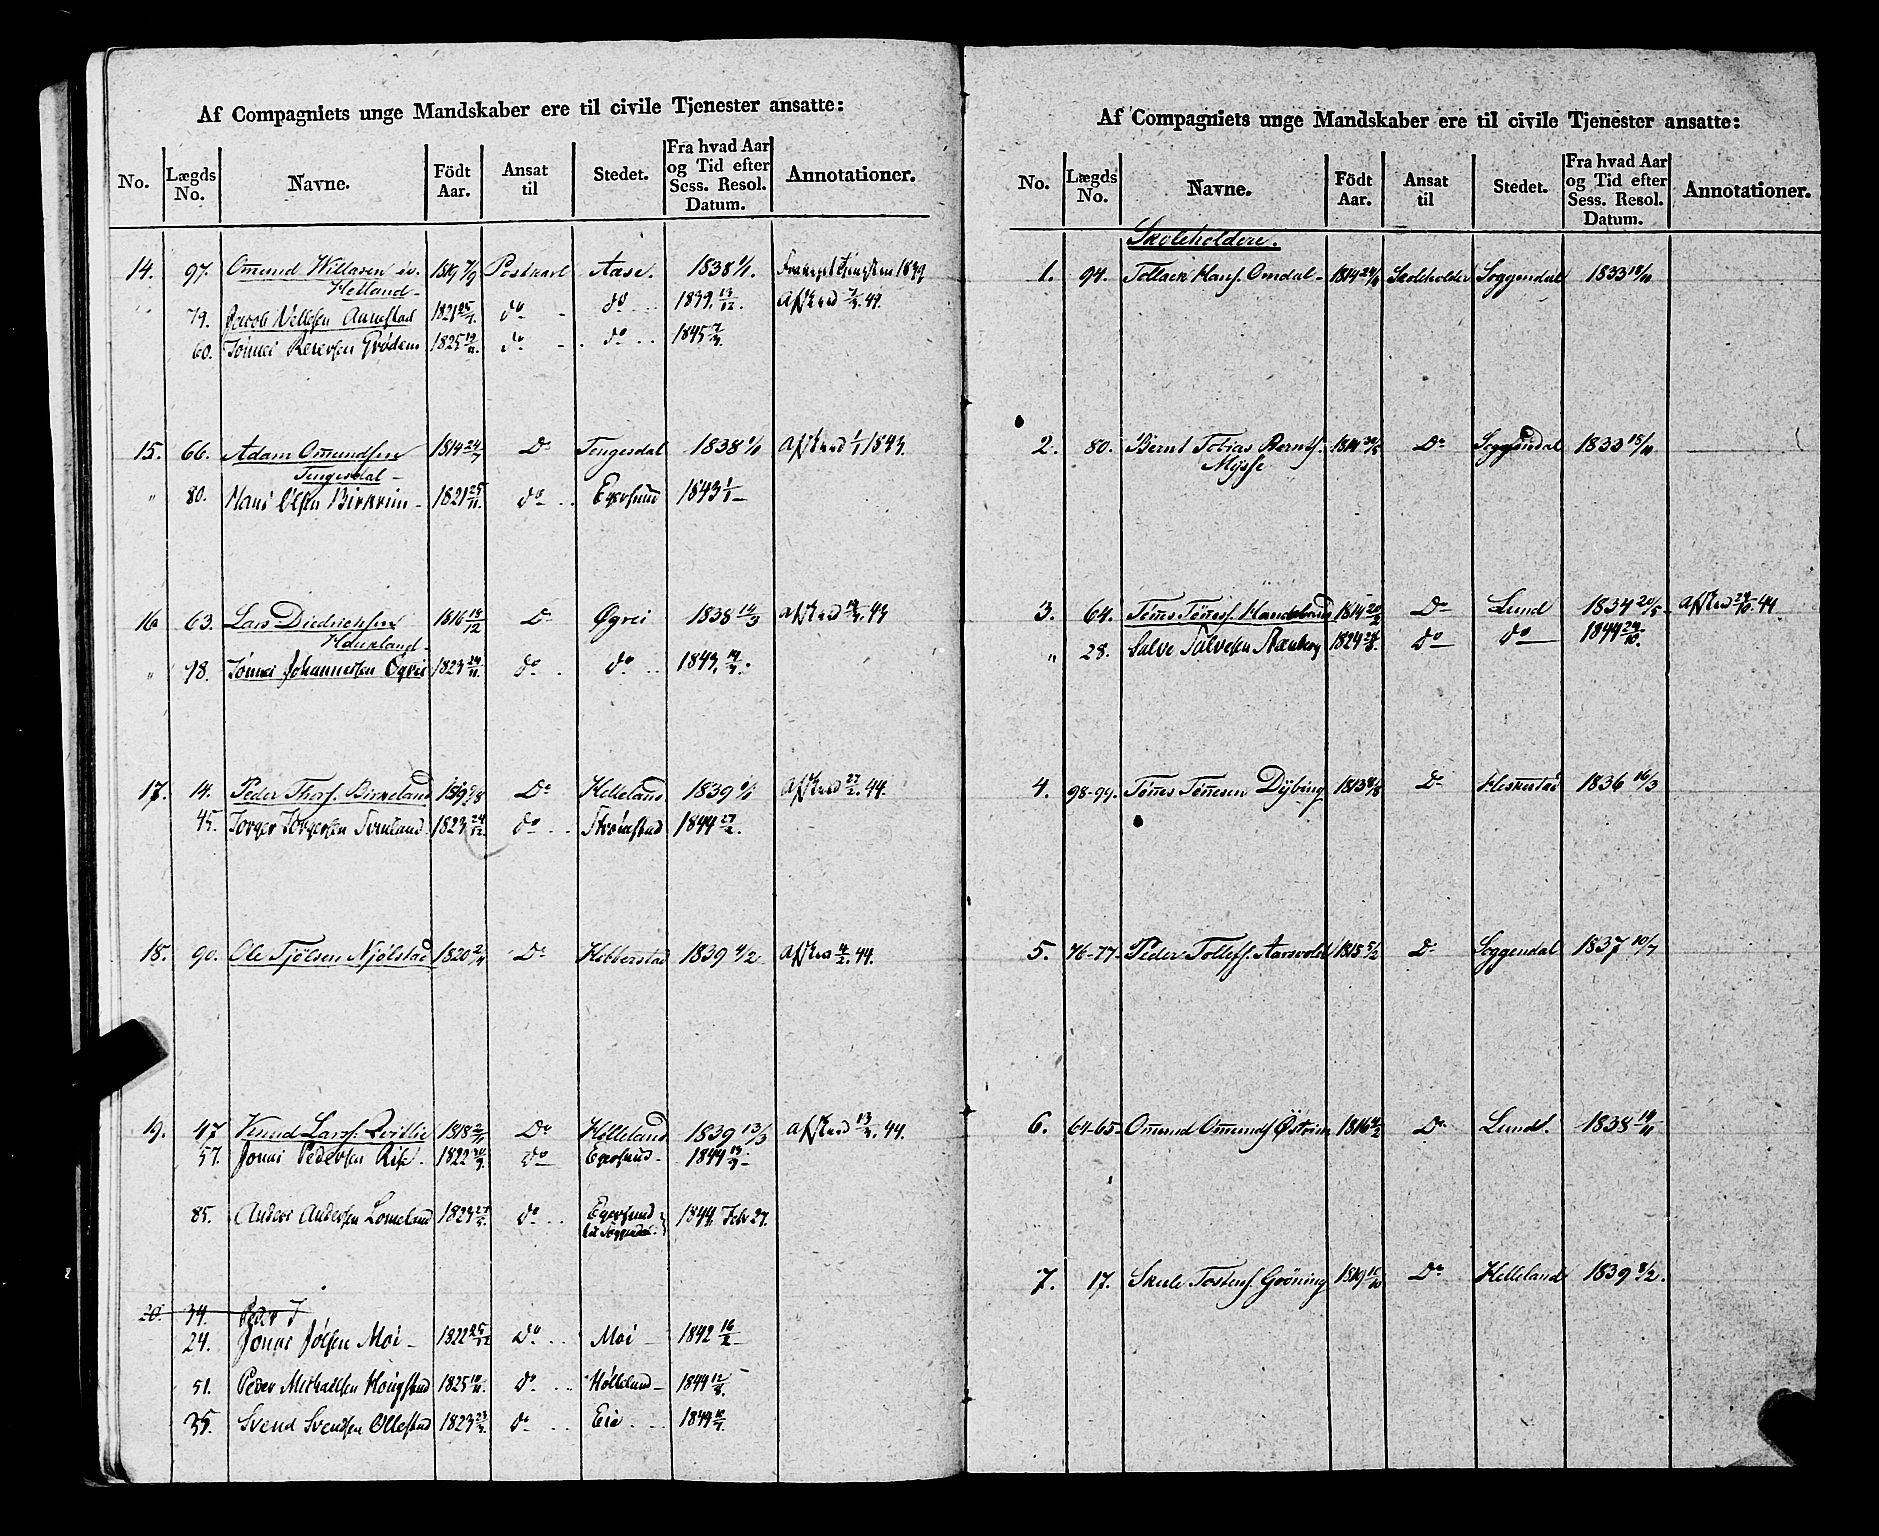 Af Compagniets unge Mandskaber ere til civile Tjenester ansatte:
No. Lægds No. Navne. Födt Aar. Ansat til Stedet. Fra hvad Aar og Tid efter Sess. Resol. Datum. Annotationer.
14. 97. Omund Willassen 1819 Postkarl Aase. 1838 1/1 1839
Helland
79. Jacob 1821 25/7 do do 1839. 13/12 Afsked 44.
60. Tönnes Petersen Grødem 1825 19/11 do do 1845
15. 66. Adam Omundsen 1814 24/7 Do Tengesdal 1838 1/1 Afsked 1/1 1843.
Tengesdal
" 80. Hans Olsen Birkrim 1821 25/11 do Egersund 1843 1/1
16 63. Lars Diedrichsen 1816 18/12 Do Øgrei 1838 14/3 Afsked 44
" 78. Tönnes Johannessen Ogrei 1823 24/11 do do 1843.
17. 14. Peder Thors. Birkeland 1819 Do Helleland 1839 1/1 Afsked 27/2. 44.
45. Torger Torgersen 1823 24/12 do 1844 27/2.
18. 90. Ole Tjölsen Njölstad 1820 Do Hebberstad 1839 4/2 Afsked 4/2. 44.
19. 47 Knud Larss. 1818 Do Helleland 1839 13/3 Afsked 44.
57. Jonas Pedersen 1822 do Egersund 1844
85. Anders Andersen Lomeland 1823 do Egersund 1844 Febr 27.
til Soggendal
20. 34. Peder J
24. Jonas Jølsen Moi 1822 25/12 do Moi 1842 16/2
51. Peder Michaelsen 1825 19/11 do Helleland 1844 12/8.
35. Svend Svendsen Ollestad 1823 do Eie 1844
Af Compagniets unge Mandskaber ere til civile Tjenester ansatte:
No. Lægds No. Navne. Födt Aar. Ansat til Stedet. Fra hvad Aar og Tid efter Sess. Resol. Datum. Annotationer.
Skoleholdere.
1. 94. Tollack Hans. Omdal 1814 Skoleholder Soggendal 1833 18/11
2. 80. Bernt Tobias Bernts. 1814 Do Soggendal 1833 18/11
Mysse
3. 64. Tönes Töness. 1814 Do Lund 1834 20/5 Afsked 24/10. 44
" 28. Salve Salvesen 1824 do do 1844 24/10.
4. 98-99. Tönes Tönesen Dÿbing 1813 Do Heskestad 1836 16/3
5. 76-77 Peder Tollefs. Aarsvold 1815 5/2 Do Soggendal 1837 10/7
6. 64-65 Omund Omunds. 1816 Do Lund. 1838 14/11
7. 17. Skule Tostens. Gröning 1819 Do Helleland 1839 4/2.